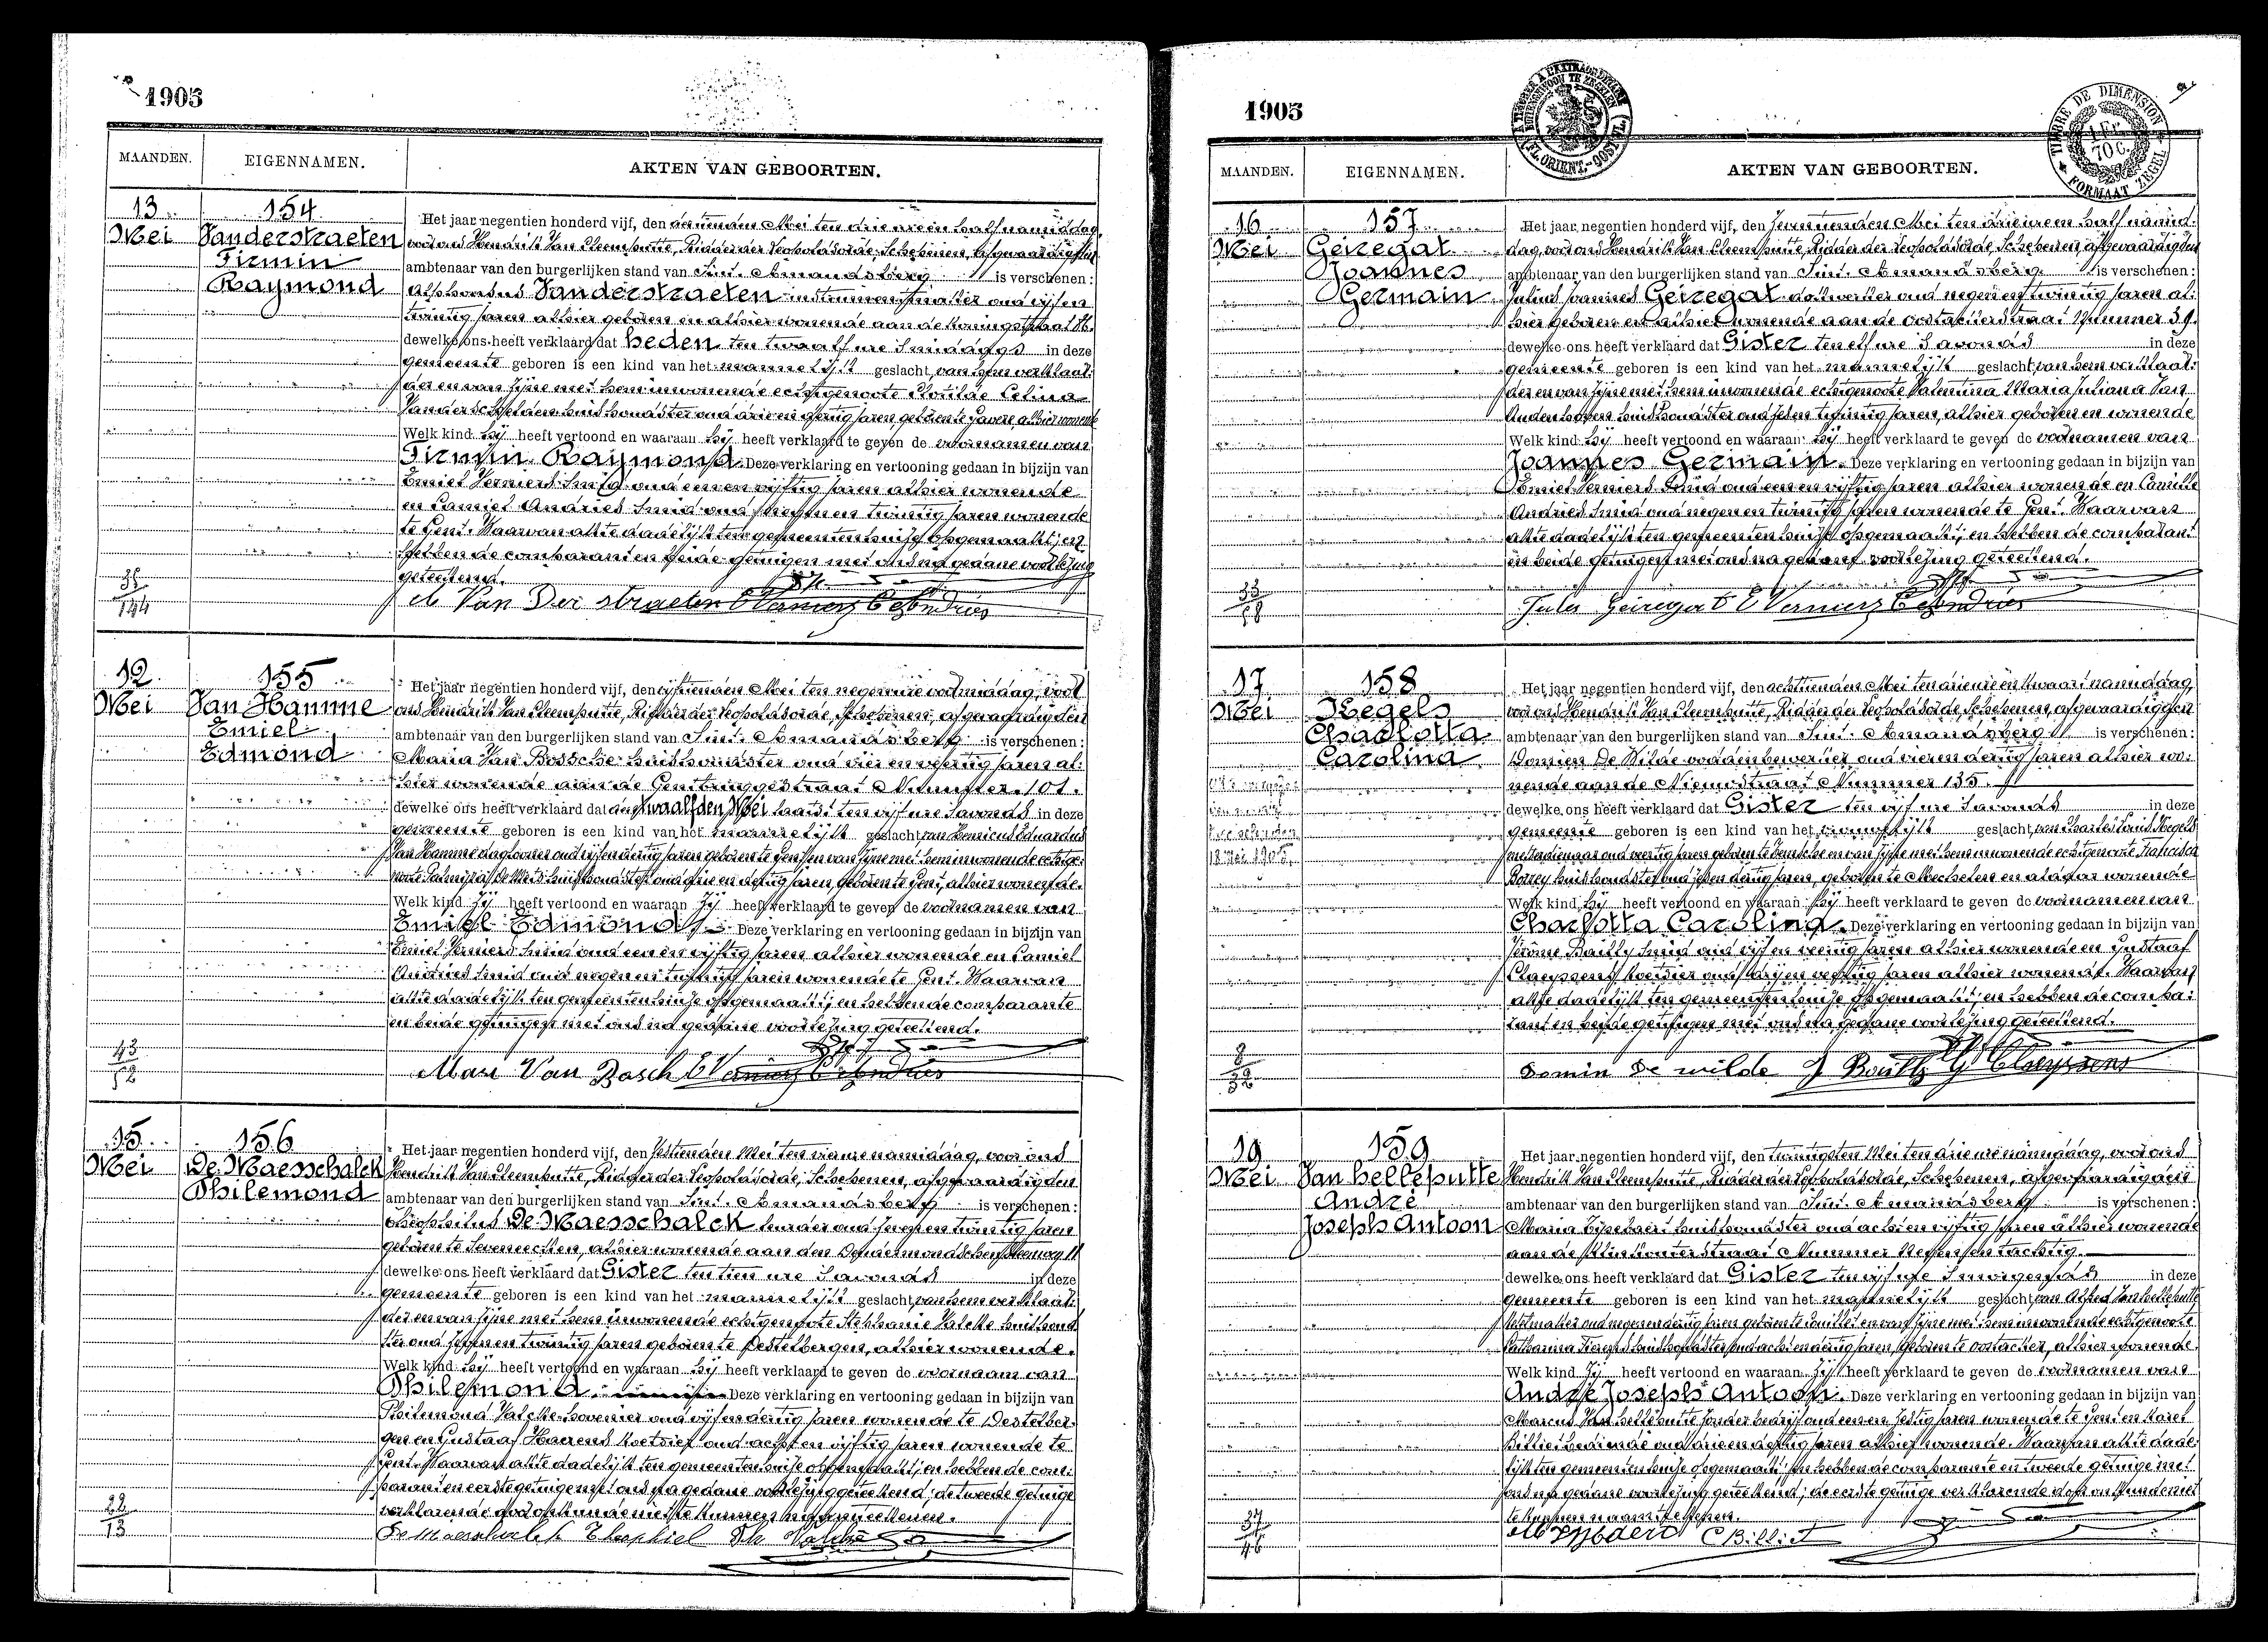 1905
MAANDEN. EIGENNAMEN. AKTEN VAN GEBOORTEN.
13 Mei
154
Vanderstraeten
Firmin
Raymond
Het jaar negentien honderd vijf, den dertienden Mei ten drie ure en half namiddag,
voor ons Hendrik Van Cleemputte, Ridder der Leopoldsorde, Schepenen, afgevaardigden
ambtenaar van den burgerlijken stand van Sint Amandsberg is verschenen:
Alphonsus Vanderstraeten oud vijf en
twintig jaren alhier geboren en alhier wonende aan de
dewelke ons heeft verklaard dat heden ten twaalf ure 's middags in deze
gemeente geboren is een kind van het mannelijk geslacht, van hem verklaar-
der en van zijne met hem inwonende echtgenoote Clotilde Celina
Vanderschelden huishoudster oud drie en dertig jaren, geboren te alhier wonende
Welk kind hij heeft vertoond en waaraan hij heeft verklaard te geven de voornamen van
Firmin Raymond. Deze verklaring en vertooning gedaan in bijzijn van
Emiel Verniers Smid oud een en vijftig jaren alhier wonende
en Camiel Andries Smid oud negen en twintig jaren wonende
te Gent. Waarvan akte dadelijk ten gemeentenhuize opgemaakt; en
hebben de comparant en beide getuigen met ons na gedane voorlezing
geteekend.
35
144
A Van Der straeten E Verniers C Andries
12 Mei
155
Van Hamme
Emiel
Edmond
Het jaar negentien honderd vijf, den vijftienden Mei ten negen ure voormiddag, voor
ons Hendrik Van Cleemputte, Ridder der Leopoldsorde, Schepenen, afgevaardigden
ambtenaar van den burgerlijken stand van Sint Amandsberg is verschenen:
Maria Van Bossche huishoudster oud vier en veertig jaren al-
hier wonende aan de Gentbruggestraat Nummer 101.
dewelke ons heeft verklaard dat den twaalfden Mei laatst ten vijf ure 's avonds in deze
gemeente geboren is een kind van het mannelijk geslacht, van Henricus Eduardus
Van Hamme dagloner oud vijf en dertig jaren geboren te Gent en van zijne met hem inwonende echtge-
noote huishoudster oud en dertig jaren, geboren te Gent, alhier wonende.
Welk kind zij heeft vertoond en waaraan zij heeft verklaard te geven de voornamen van
Emiel Edmond. Deze verklaring en vertooning gedaan in bijzijn van
Emiel Verniers Smid oud een en vijftig jaren alhier wonende en Camiel
Andries Smid oud negen en twintig jaren wonende te Gent. Waarvan
akte dadelijk ten gemeentenhuize opgemaakt; en hebben de comparante
en beide getuigen met ons na gedane voorlezing geteekend.
43
52
Mari Van Basch E Verniers C Andries
15 Mei
156
De Maesschalck
Philemond
Het jaar negentien honderd vijf, den zestienden Mei ten vier ure namiddag, voor ons
Hendrik Van Cleemputte, Ridder der Leopoldsorde, Schepenen, afgevaardigden
ambtenaar van den burgerlijken stand van Sint Amandsberg is verschenen:
Theophilus De Maesschalck oud zeven en twintig jaren
geboren te Seveneecken, alhier wonende aan den Dendermondschen Steenweg 11
dewelke ons heeft verklaard dat Gister ten tien ure 's avonds in deze
gemeente geboren is een kind van het mannelijk geslacht, van hem verklaar-
der en van zijne met hem inwonende echtgenoote Stephanie Valcke huishoud-
ster oud zeven en twintig jaren geboren te Destelbergen, alhier wonende.
Welk kind hij heeft vertoond en waaraan hij heeft verklaard te geven de voornaam van
Philemond. Deze verklaring en vertooning gedaan in bijzijn van
Philemond Valcke hovenier oud vijf en dertig jaren wonende te Destelber-
gen en Gustaaf Haerens koetsier oud acht en vijftig jaren wonende te
Gent. Waarvan akte dadelijk ten gemeentenhuize opgemaakt, en hebben de com-
parant en eerste getuige met ons na gedane voorlezing geteekend; de tweede getuige
verklarende door onkunde niet te kunnen naamteekenen.
22
13
De Maesschalck Theophiel Ph Valcke
1905
TIMBRE DE DIMENSION
1 Fr. 70 C.
FORMAAT ZEGEL
MAANDEN. EIGENNAMEN. AKTEN VAN GEBOORTEN.
16 Mei
157
Geiregat
Joannes
Germain
Het jaar negentien honderd vijf, den zeventienden Mei ten drie ure en half namid-
dag, voor ons Hendrik Van Cleemputte, Ridder der Leopoldsorde, Schepenen, afgevaardigden
ambtenaar van den burgerlijken stand van Sint Amandsberg is verschenen:
Julius Joannes Geiregat oud negen en twintig jaren al-
hier geboren en alhier wonende aan de Oostackerstraat Nummer 39.
dewelke ons heeft verklaard dat Gister ten elf ure 's avonds in deze
gemeente geboren is een kind van het mannelijk geslacht, van hem verklaar-
der en van zijne met hem inwonende echtgenoote Valentina Maria Juliana Van
Audenhoven huishoudster oud zeven twintig jaren, alhier geboren en wonende
Welk kind hij heeft vertoond en waaraan hij heeft verklaard te geven de voornamen van
Joannes Germain. Deze verklaring en vertooning gedaan in bijzijn van
Emiel Verniers Smid oud een en vijftig jaren alhier wonende en Camille
Andries Smid oud negen en twintig jaren wonende te Gent. Waarvan
akte dadelijk ten gemeentenhuize opgemaakt; en hebben de comparant
en beide getuigen met ons na gedane voorlezing geteekend.
33
58
Jules Geiregat E Verniers C Andries
17 Mei
158
Kegels
Charlotta
Carolina
18 Mei 1905
Het jaar negentien honderd vijf, den achttienden Mei ten drie ure en kwaart namiddag,
voor ons Hendrik Van Cleemputte, Ridder der Leopoldsorde, Schepenen, afgevaardigden
ambtenaar van den burgerlijken stand van Sint Amandsberg is verschenen:
Domien De Wilde oud vier en dertig jaren alhier wo-
nende aan de Nieuwstraat Nummer 135.
dewelke ons heeft verklaard dat Gister ten vijf ure 's avonds in deze
gemeente geboren is een kind van het vrouwelijk geslacht, van Charles Louis Kegels
oud veertig jaren geboren te en van zijne met hem inwonende echtgenoote Francisca
huishoudster oud zeven dertig jaren, geboren te Mechelen en aldaar wonende
Welk kind hij heeft vertoond en waaraan hij heeft verklaard te geven de voornamen van
Charlotta Carolina. Deze verklaring en vertooning gedaan in bijzijn van
Jérôme Bailly Smid oud vijf en veertig jaren alhier wonende en Gustaaf
Claeyssens koetsier oud en veertig jaren alhier wonende. Waarvan
akte dadelijk ten gemeentenhuize opgemaakt; en hebben de compa-
rant en beide getuigen met ons na gedane voorlezing geteekend.
8
39
32
Domin De wilde J Bailly G Claeyssens
19 Mei
159
Van Helleputte
André
Joseph Antoon
Het jaar negentien honderd vijf, den twintigsten Mei ten drie ure namiddag, voor ons
Hendrik Van Cleemputte, Ridder der Leopoldsorde, Schepenen, afgevaardigden
ambtenaar van den burgerlijken stand van Sint Amandsberg is verschenen:
Maria huishoudster oud acht en vijftig jaren alhier wonende
aan de straat Nummer en tachtig.
dewelke ons heeft verklaard dat Gister ten vijf ure 's morgends in deze
gemeente geboren is een kind van het mannelijk geslacht, van Alfred Van Helleputte
oud negen en dertig jaren geboren te en van zijne met hem inwonende echtgenoote
Catharina huishoudster oud acht en dertig jaren, geboren te Oostacker, alhier wonende.
Welk kind zij heeft vertoond en waaraan zij heeft verklaard te geven de voornamen van
André Joseph Antoon. Deze verklaring en vertooning gedaan in bijzijn van
Marcus Van Helleputte zonder bedrijf oud een en zestig jaren wonende te Gent en Karel
Billiet bediende oud drie en dertig jaren alhier wonende. Waarvan akte dade-
lijk ten gemeentenhuize opgemaakt; en hebben de comparante en tweede getuige met
ons na gedane voorlezing geteekend; de eerste getuige verklarende door onkunde niet
te kunnen naamteekenen.
37
46
C Billiet